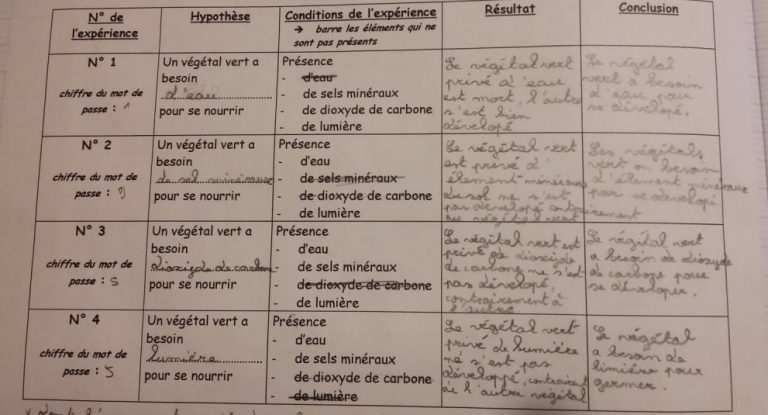 N° de l'expérience
Hypothèse
Conditions de l'expérience
→ barre les éléments qui ne sont pas présents
Résultat
Conclusion
N° 1
chiffre du mot de passe : 1
Un végétal vert a
besoin
d'eau
pour se nourrir
Présence
- d'eau
- de sels minéraux
- de dioxyde de carbone
- de lumière
Le végétal vert
privé d'eau
est mort, l'autre
s'est bien
dévelopé
Le végétal
vert a besoin
d'eau pour
se dévelopé.
N° 2
chiffre du mot de passe : 9
Un végétal vert a
besoin
de sel minéraux
pour se nourrir
Présence
- d'eau
- de sels minéraux
- de dioxyde de carbone
- de lumière
Le végétal vert
est privé d'
élément minéraux
du sol ne s'est
pas dévelopé contrairement
au végétal vert
Les végétals
vert on besoin
d'élément minéraux
pour se dévelopé
N° 3
chiffre du mot de passe : 5
Un végétal vert a
besoin
dioxigde de carbone
pour se nourrir
Présence
- d'eau
- de sels minéraux
- de dioxyde de carbone
- de lumière
Le végétal vert est
privé de dioxide
de carbone ne s'est
pas dévelopé,
contrairement à
l'autre
Le végétal vert
a besoin de dioxyde
de carbone pour
se développer.
N° 4
chiffre du mot de passe : 5
Un végétal vert a
besoin
lumière
pour se nourrir
Présence
- d'eau
- de sels minéraux
- de dioxyde de carbone
- de lumière
Le végétal vert
privé de lumière
ne s'est pas
développé, contrairement
à l'autre végétal
Le végétal
a besoin de
limière pour
germer.